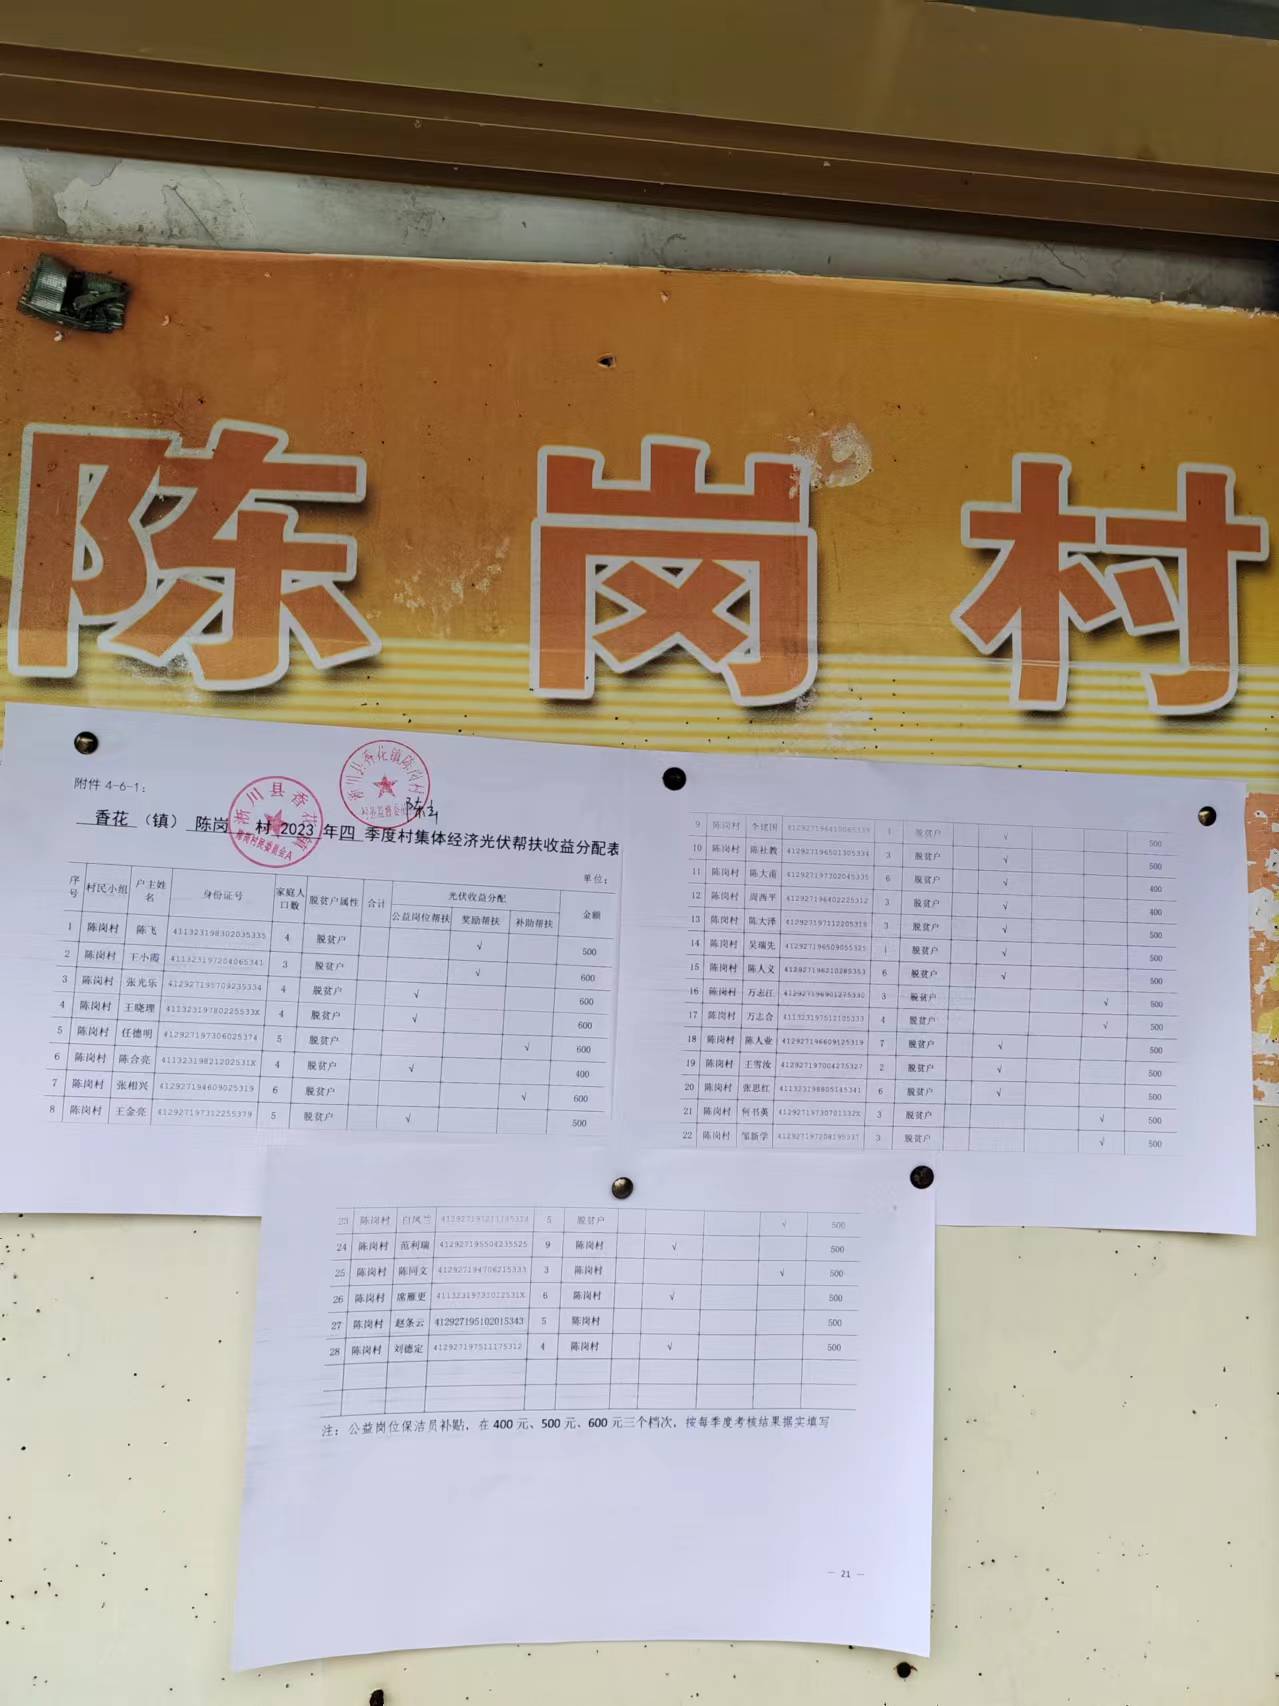 陈岗村
附件 4-6-1：
香花 （镇） 陈岗 村 2023 年四 季度村集体经济光伏帮扶收益分配表
单位：
序号 村民小组 户主姓名 身份证号 家庭人口数 脱贫户属性 合计 光伏收益分配 金额
公益岗位帮扶 奖励帮扶 补助帮扶
1 陈岗村 陈飞 411323198302035335 4 脱贫户 √ 500
2 陈岗村 王小霞 411323197204065341 3 脱贫户 √ 600
3 陈岗村 张光乐 412927195709235334 4 脱贫户 √ 600
4 陈岗村 王晓理 41132319780225533X 4 脱贫户 √ 600
5 陈岗村 任德明 412927197306025374 5 脱贫户 √ 600
6 陈岗村 陈合亮 41132319821202531X 4 脱贫户 √ 400
7 陈岗村 张相兴 412927194609025319 6 脱贫户 √ 600
8 陈岗村 王金亮 412927197312255379 5 脱贫户 √ 500
9 陈岗村 李建国 1 脱贫户 √ 500
10 陈岗村 陈社教 412927196501305334 3 脱贫户 √ 500
11 陈岗村 陈大甫 412927197302045335 6 脱贫户 √ 400
12 陈岗村 周西平 412927196402225312 3 脱贫户 √ 400
13 陈岗村 陈大泽 412927197112205319 3 脱贫户 √ 500
14 陈岗村 吴瑞先 412927196509055325 1 脱贫户 √ 500
15 陈岗村 陈人义 412927196210285353 6 脱贫户 √ 500
16 陈岗村 万志江 412927196901275330 3 脱贫户 √ 500
17 陈岗村 万志合 411323197512105333 4 脱贫户 √ 500
18 陈岗村 陈人业 412927196609125319 7 脱贫户 √ 500
19 陈岗村 王雪汝 412927197004275327 2 脱贫户 √ 500
20 陈岗村 张思红 411323198805145341 6 脱贫户 √ 500
21 陈岗村 何书英 3 脱贫户 √ 500
22 陈岗村 邹新学 412927197208195337 3 脱贫户 √ 500
23 陈岗村 白凤兰 5 脱贫户 √ 500
24 陈岗村 范利瑞 412927195504235525 9 陈岗村 √ 500
25 陈岗村 陈同文 412927194706215333 3 陈岗村 √ 500
26 陈岗村 席雁更 6 陈岗村 √ 500
27 陈岗村 赵条云 412927195102015343 5 陈岗村 500
28 陈岗村 刘德定 412927197511175312 4 陈岗村 √ 500
注：公益岗位保洁员补贴，在 400 元、500 元、600 元三个档次，按每季度考核结果据实填写
— 21 —